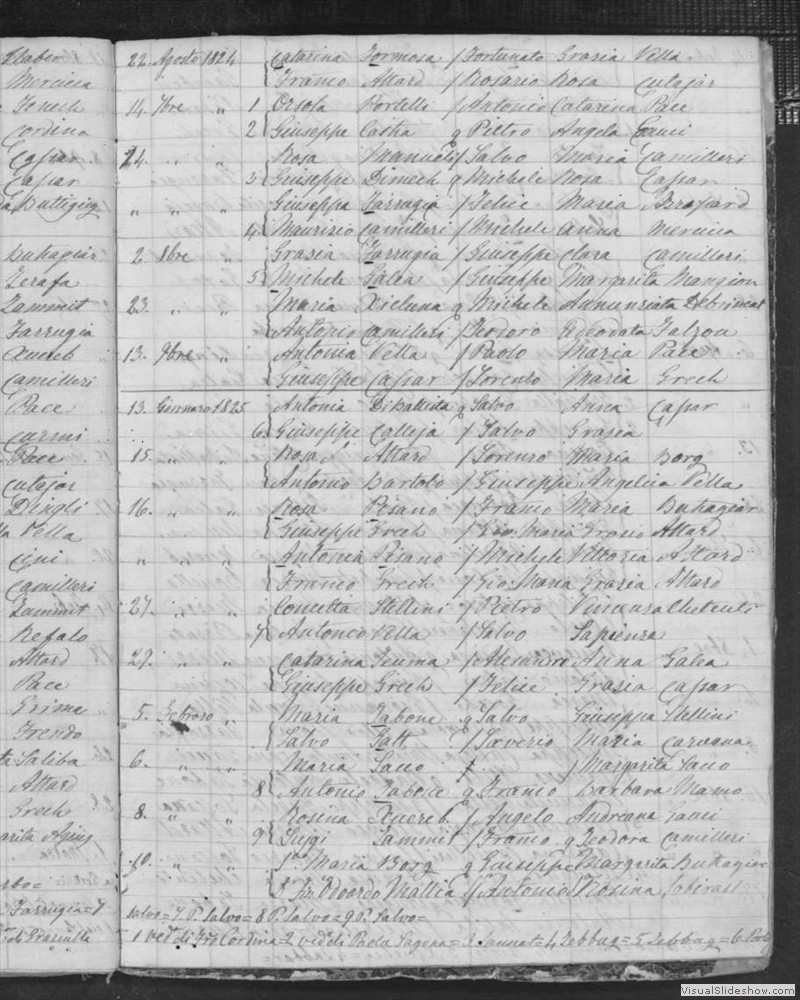 Xaber
Mercieca
Zenech
Cordina
Caspar
Caspar
Buttigieg
Buttagiar
Zerafa
Zammit
Farrugia
Camilleri
Pace
Pace
Cutajar
Dingli
Vella
Cini
Camilleri
Zammit
Refalo
Attard
Pace
Grima
Trendo
Saliba
Attard
Grech
Farrugia = 7
22. Agosto 1824 Catarina Formosa / Fortunato Grazia Vella
Franco Attard / Rosario Rosa Cutajar
14. 7bre " 1 Orsola Portelli / Antonio Catarina Pace
2 Giuseppe q Pietro Angela Gauci
24. " " Rosa / Salvo Maria Camilleri
3 Giuseppe Dimech q Michele Rosa Caspar
" " " Giuseppa Farrugia / Felice Maria
4 Maurizio Camilleri / Michele Anna Mercieca
2. 8bre " Grazia Farrugia / Giuseppe Clara Camilleri
5 Michele Galea / Giuseppe Margarita Mangion
23. " " Maria Xicluna q Michele Annunziata Debrincat
Antonio Camilleri / Teodoro Adeodata Falzon
13. 9bre " Antonia Vella / Paolo Maria Pace
Giuseppe Caspar / Lorenzo Maria Grech
13. Gennaro 1825 Antonia DiBattista q Salvo Anna Caspar
6 Giuseppe Calleja / Salvo Grazia
15. " " Rosa Attard / Lorenzo Maria Borg
Antonio Bartolo / Giuseppe Angelica Vella
16. " " Rosa Pisano / Franco Maria Buttagiar
Giuseppe Grech / Gio Maria Grazia Attard
" " " Antonia Pisano / Michele Vittoria Attard
Franco Grech / Gio Maria Grazia Attard
27. " " Concetta Stellini / Pietro Vincenza Chetcuti
7 Antonio Vella / Salvo Sapienza
29. " " Catarina / Alesandro Anna Galea
Giuseppe Grech / Felice Grazia Caspar
5. Febraro " Maria Tabone q Salvo Giuseppa Stellini
Salvo Falt / Saverio Maria Caruana
6. " " Maria Sacco / Margarita Sacco
8 Antonio Tabone q Franco Barbara Mamo
8. " " Rosina Xuereb / Angelo Andreana Gauci
9 Luigi Zammit / Franco q Teodora Camilleri
10. " " Maria Borg q Giuseppe Margarita Buttagiar
Odoardo Mattia / Antonio Rosina
Salvo = 7 P. Salvo = 8 P. Salvo = 9 P. Salvo =
1 ved. di Cordina = 2 ved. di Paola = 3 Sannat = 4 Zebbug = 5 Zebbug = 6
VisualSlideshow.com